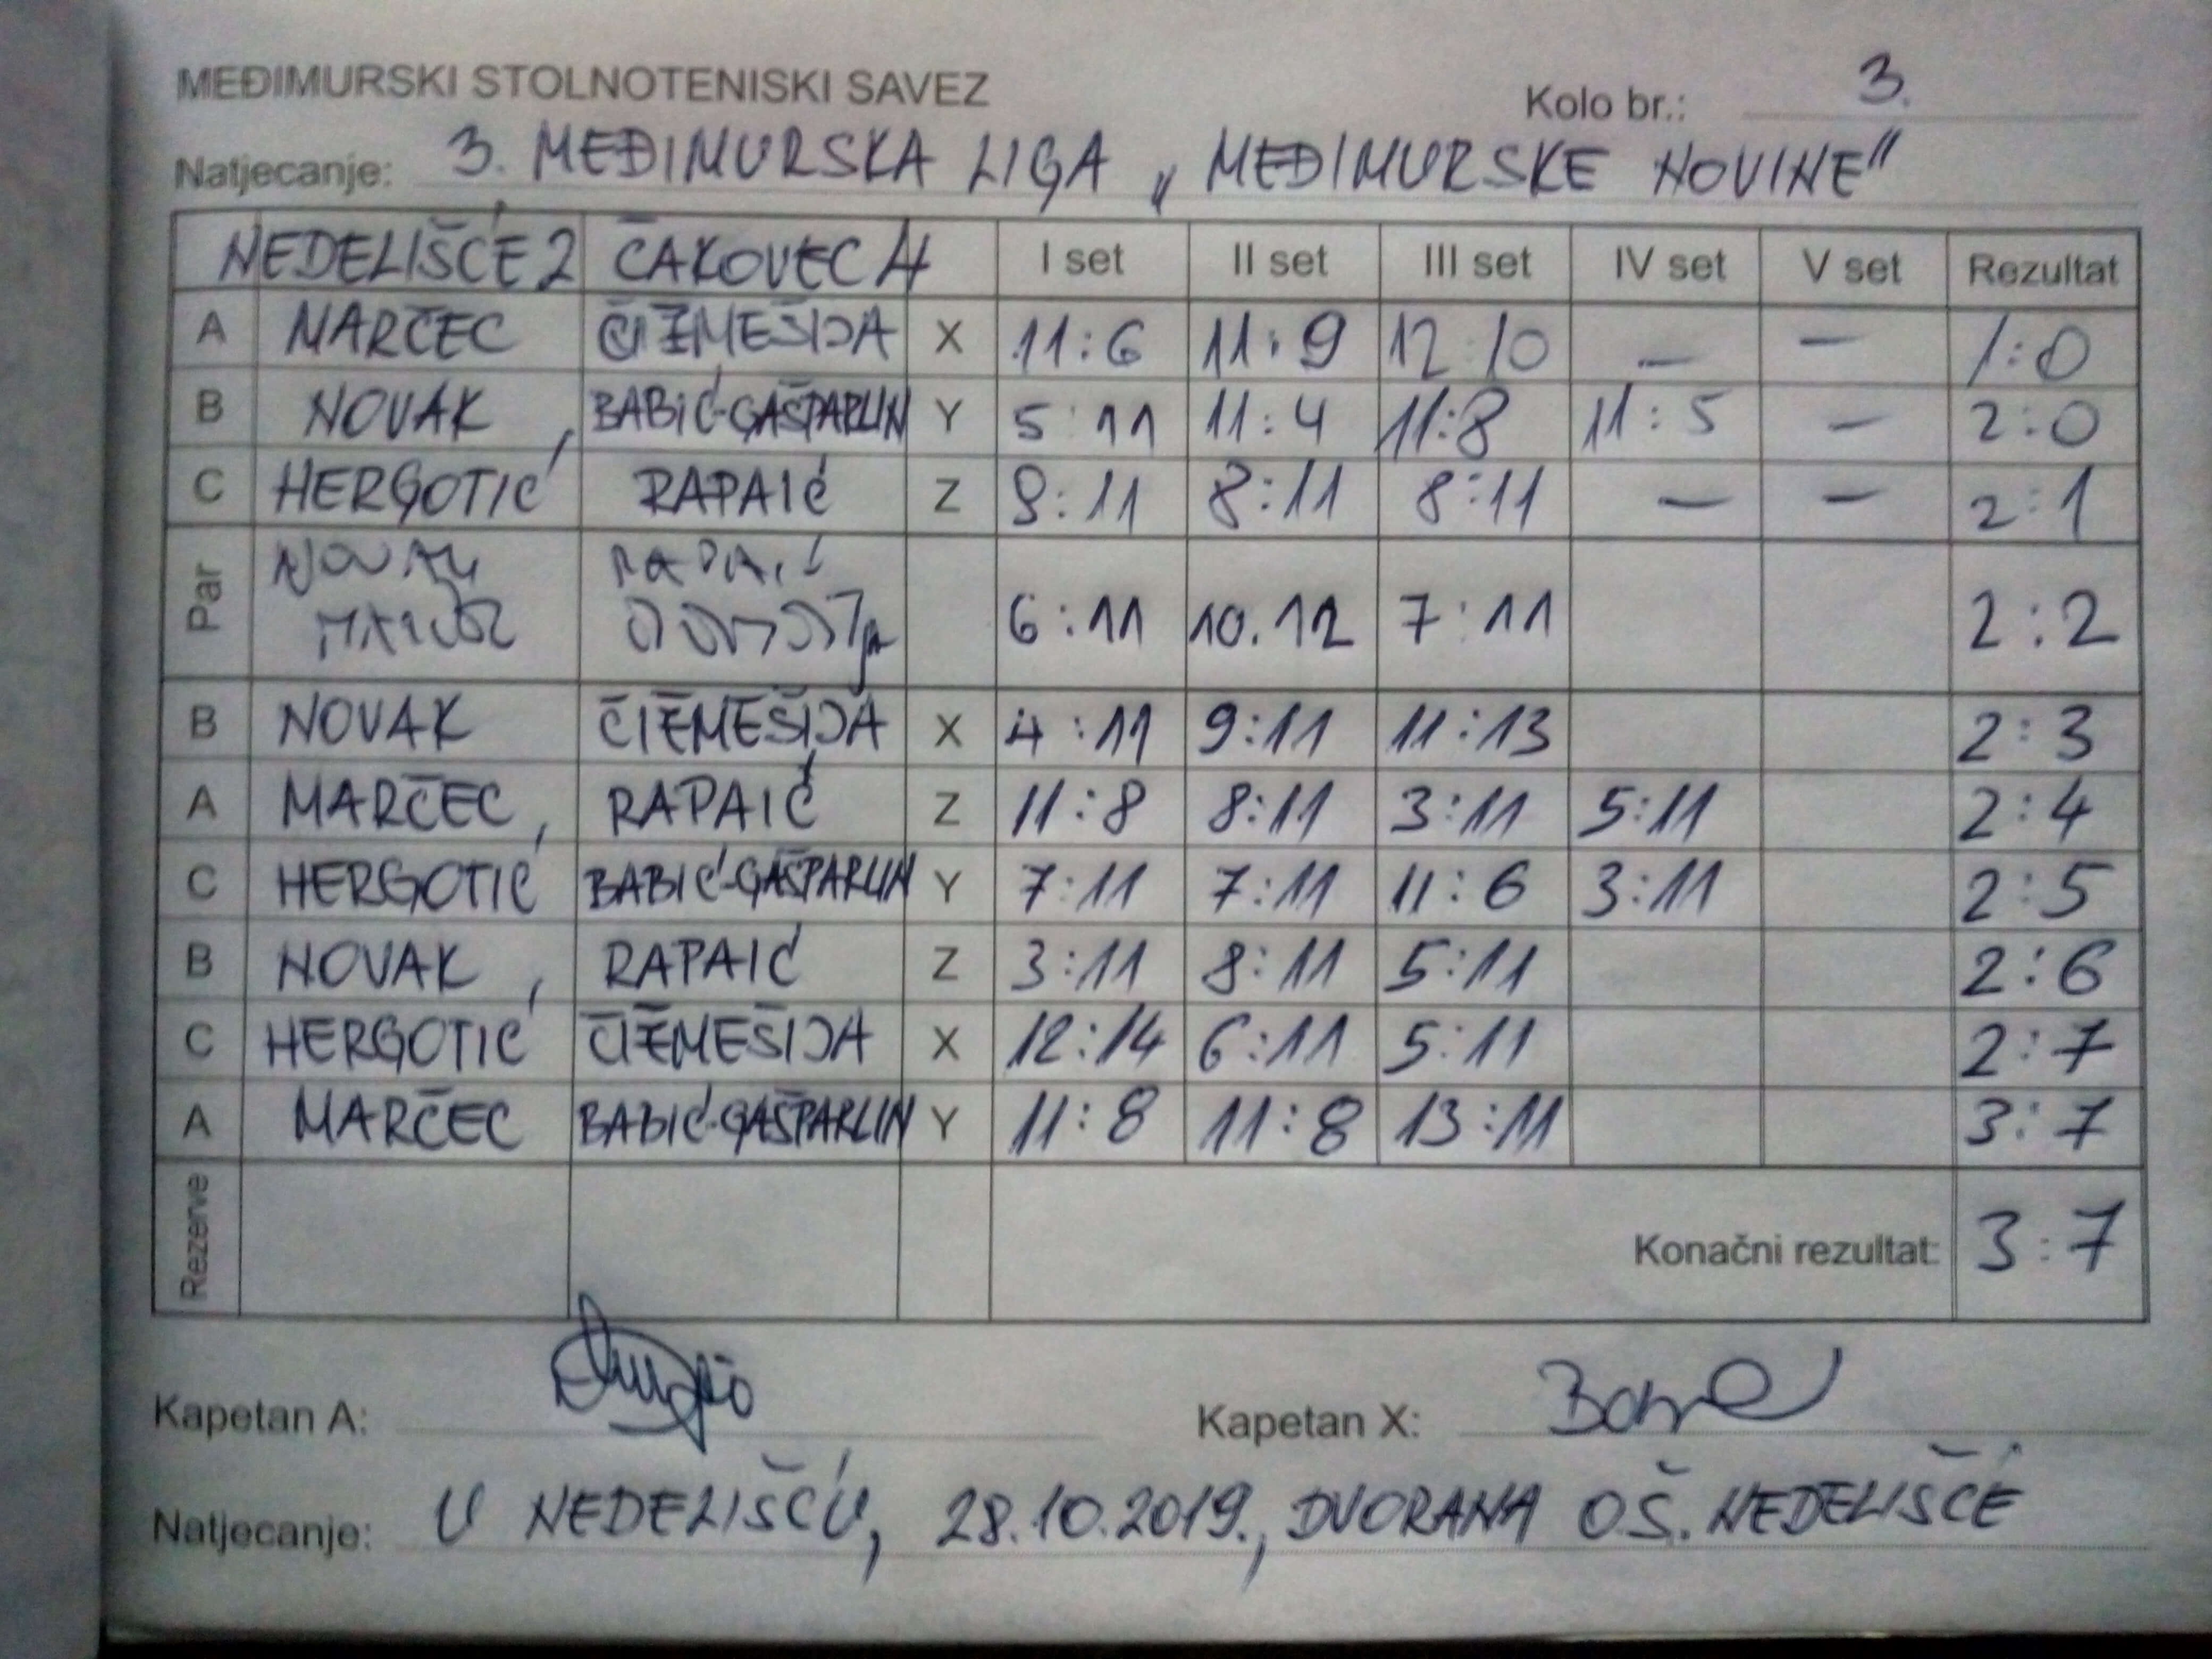 MEĐIMURSKI STOLNOTENISKI SAVEZ
Kolo br.: 3.
Natjecanje: 3. MEĐIMURSKA LIGA „MEĐIMURSKE NOVINE"
NEDELIŠĆE 2 ČAKOVEC 4 I set II set III set IV set V set Rezultat
A MARČEC ČIŽMEŠIJA X 11:6 11:9 12:10 – – 1:0
B NOVAK BABIĆ-GAŠPARLIN Y 5:11 11:4 11:8 11:5 – 2:0
C HERGOTIĆ RAPAIĆ Z 8:11 8:11 8:11 – – 2:1
Par NOVAK RAPAIĆ
6:11 10.12 7:11 2:2
B NOVAK ČIŽMEŠIJA X 4:11 9:11 11:13 2:3
A MARČEC RAPAIĆ Z 11:8 8:11 3:11 5:11 2:4
C HERGOTIĆ BABIĆ-GAŠPARLIN Y 7:11 7:11 11:6 3:11 2:5
B NOVAK RAPAIĆ Z 3:11 8:11 5:11 2:6
C HERGOTIĆ ČIŽMEŠIJA X 12:14 6:11 5:11 2:7
A MARČEC BABIĆ-GAŠPARLIN Y 11:8 11:8 13:11 3:7
Rezerve Konačni rezultat: 3:7
Kapetan A: Kapetan X:
Natjecanje: U NEDELIŠĆU, 28.10.2019., DVORANA OŠ. NEDELIŠĆE